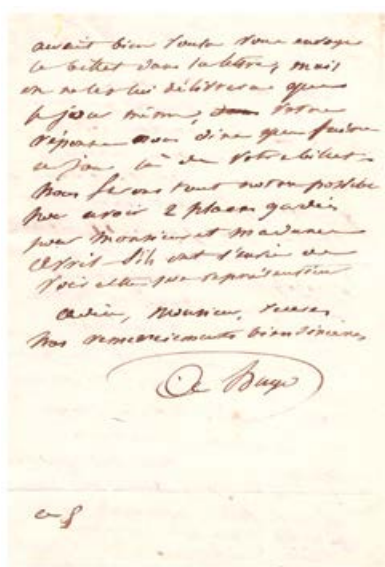 aurait bien voulu vous envoyer
le billet dans sa lettre, mais
on ne les lui délivrera que
le jour même, votre
réponse nous dira que faire
ce jour là de votre billet.
nous ferons tout notre possible
pour avoir 2 places gardées
pour monsieur et madame
s'ils ont envie de
voir cette représentation
adieu, monsieur, recevez
nos remerciements bien sincères,
A Hugo